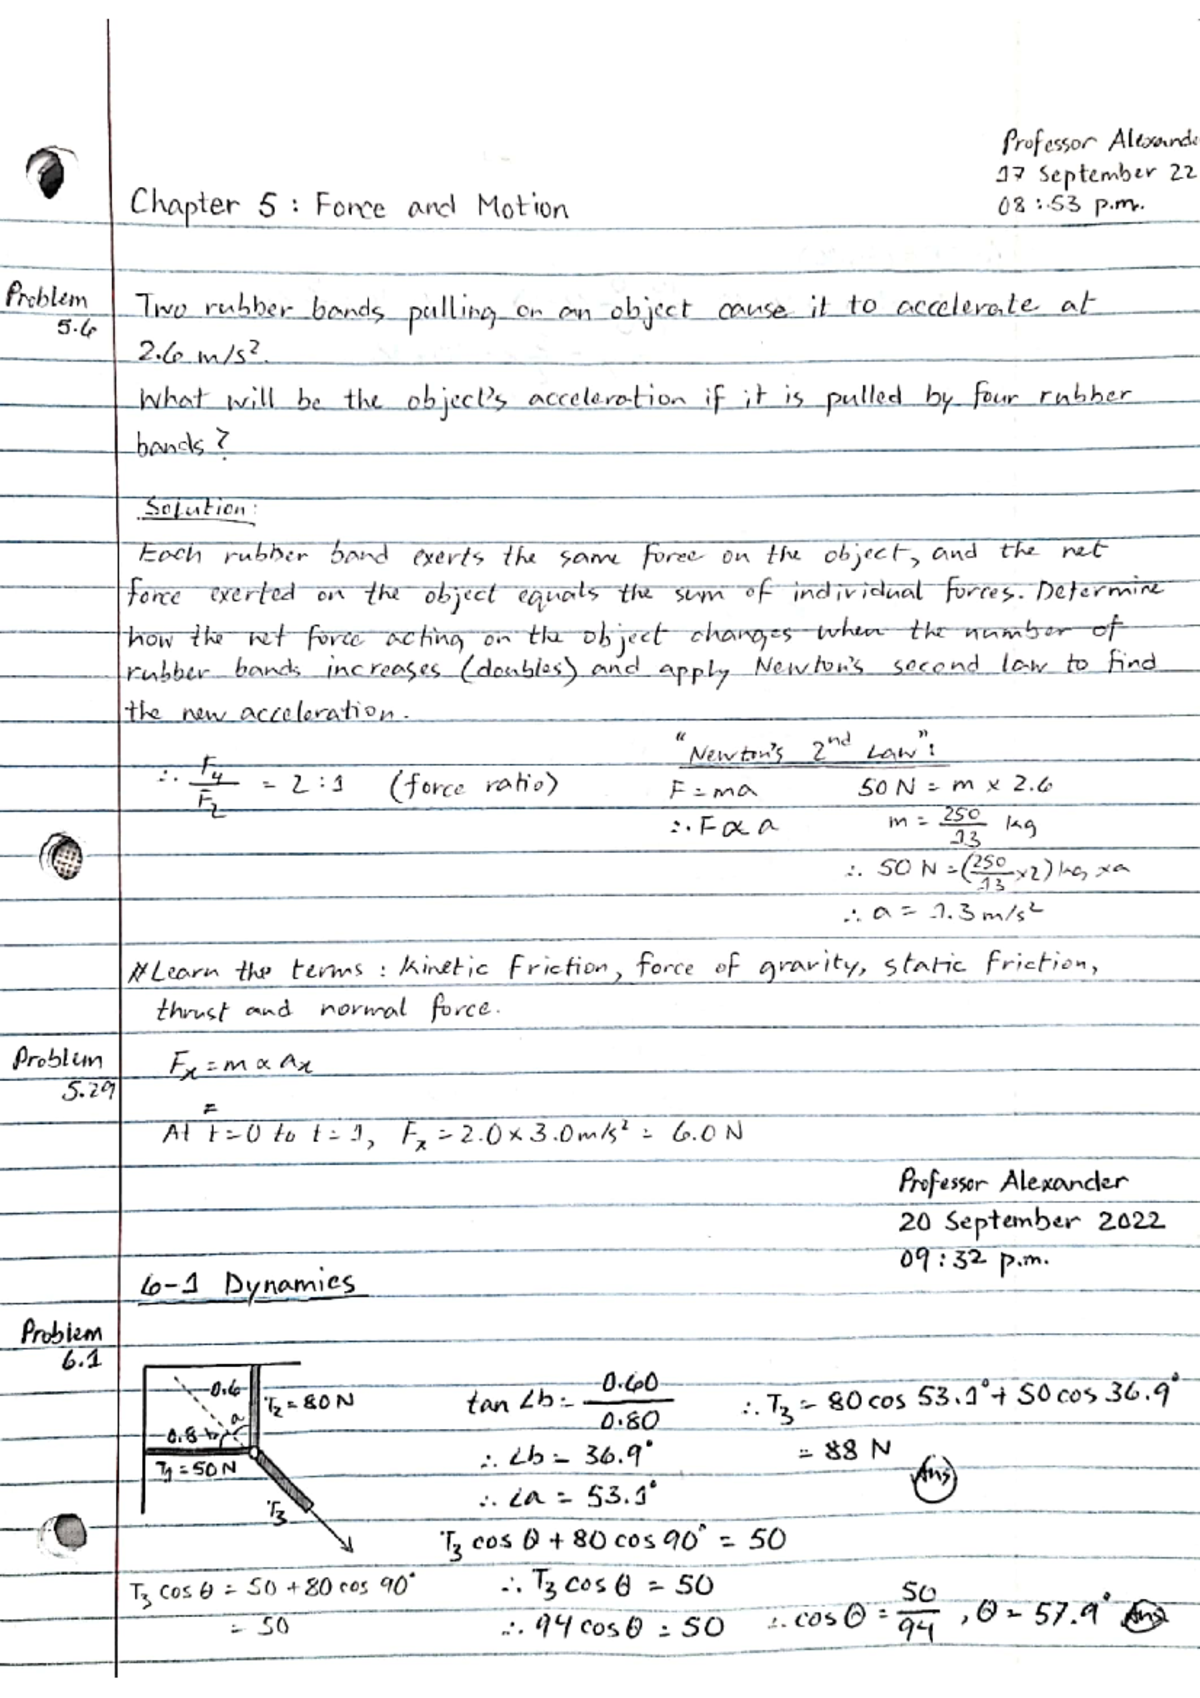 Professor Alexande
17 September 22
08:53 p.m.
Chapter 5 : Force and Motion
Problem
5.6
Two rubber bands pulling on an object cause it to accelerate at
2.6 m/s².
What will be the object's acceleration if it is pulled by four rubber
bands?
Solution:
Each rubber band exerts the same force on the object, and the net
force exerted on the object equals the sum of individual forces. Determine
how the net force acting on the object changes when the number of
rubber bands increases (doubles) and apply Newton's second law to find
the new acceleration.
"Newton's 2nd Law":
∴ F₄/F₂ = 2:1 (force ratio)
F = ma
∴ F ∝ a
50 N = m × 2.6
m = 250/13 kg
∴ 50 N = (250/13 × 2) kg × a
∴ a = 1.3 m/s²
Learn the terms : Kinetic Friction, force of gravity, static friction,
thrust and normal force.
Problem
5.29
Fx = m ∝ Ax
=
At t=0 to t=1, Fx = 2.0 × 3.0 m/s² = 6.0 N
Professor Alexander
20 September 2022
09:32 p.m.
6-1 Dynamics
Problem
6.1
0.6
T₂ = 80 N
a
0.8 b
T₁ = 50 N
T₃
tan ∠b = 0.60/0.80
∴ ∠b = 36.9°
∴ ∠a = 53.1°
∴ T₃ = 80 cos 53.1° + 50 cos 36.9°
= 88 N
Ans
T₃ cos θ + 80 cos 90° = 50
T₃ cos θ = 50 + 80 cos 90°
= 50
∴ T₃ cos θ = 50
∴ 94 cos θ = 50
∴ cos θ = 50/94 , θ = 57.9° Ans